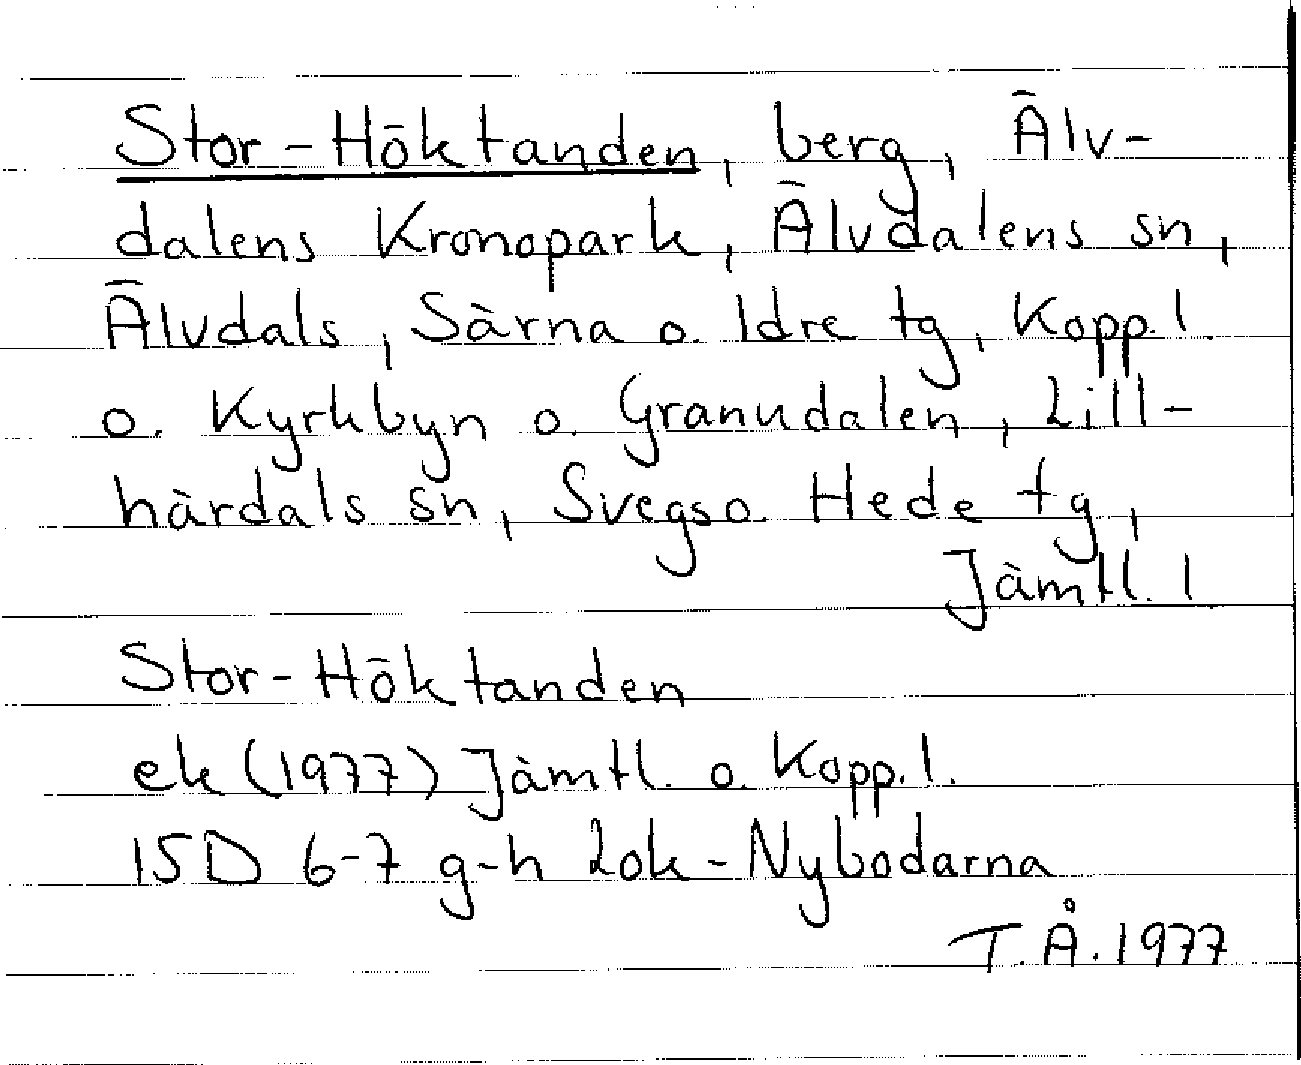 Stor-Höktanden, berg, Älv-
dalens Kronopark, Älvdalens sn,
Älvdals, Särna o. Idre tg, Kopp.l.
o. Kyrkbyn o. Granudalen, Lill-
härdals sn, Svegs o. Hede tg,
Jämtl. l
Stor-Höktanden
ek (1977) Jämtl. o. Kopp.l.
15D 6-7 g-h Lok-Nybodarna
T.Å. 1977